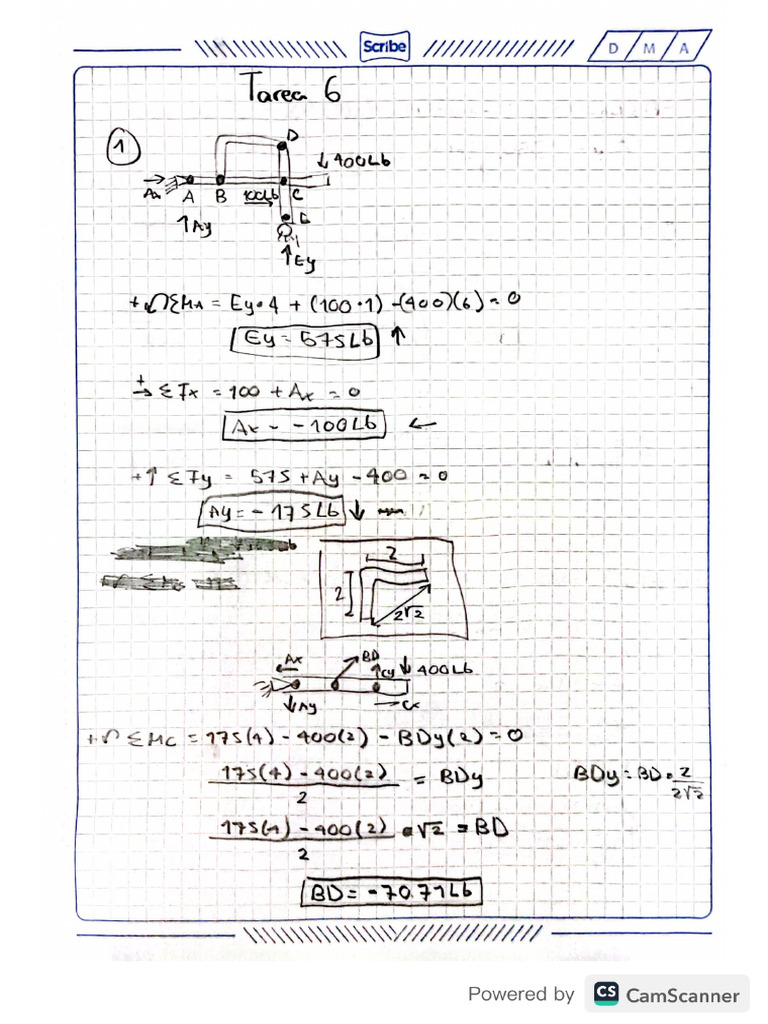 Scribe
D / M / A
Tarea 6
1
D
↓ 400Lb
Ax A B 100Lb C
↑Ay
E
↑Ey
+↶ΣMA = Ey•4 + (100•1) -(400)(6) = 0
Ey = 575Lb ↑
+→ ΣFx = 100 + Ax = 0
Ax = -100Lb ←
+↑ ΣFy = 575 + Ay - 400 = 0
Ay = -175Lb ↓
2
2
2√2
Ax BD Cy ↓ 400Lb
↓Ay → Cx
+↶ ΣMc = 175(4) - 400(2) - BDy(2) = 0
175(4) - 400(2) / 2 = BDy BDy = BD • 2 / 2√2
175(4) - 400(2) / 2 • √2 = BD
BD = -70.71Lb
Powered by CS CamScanner